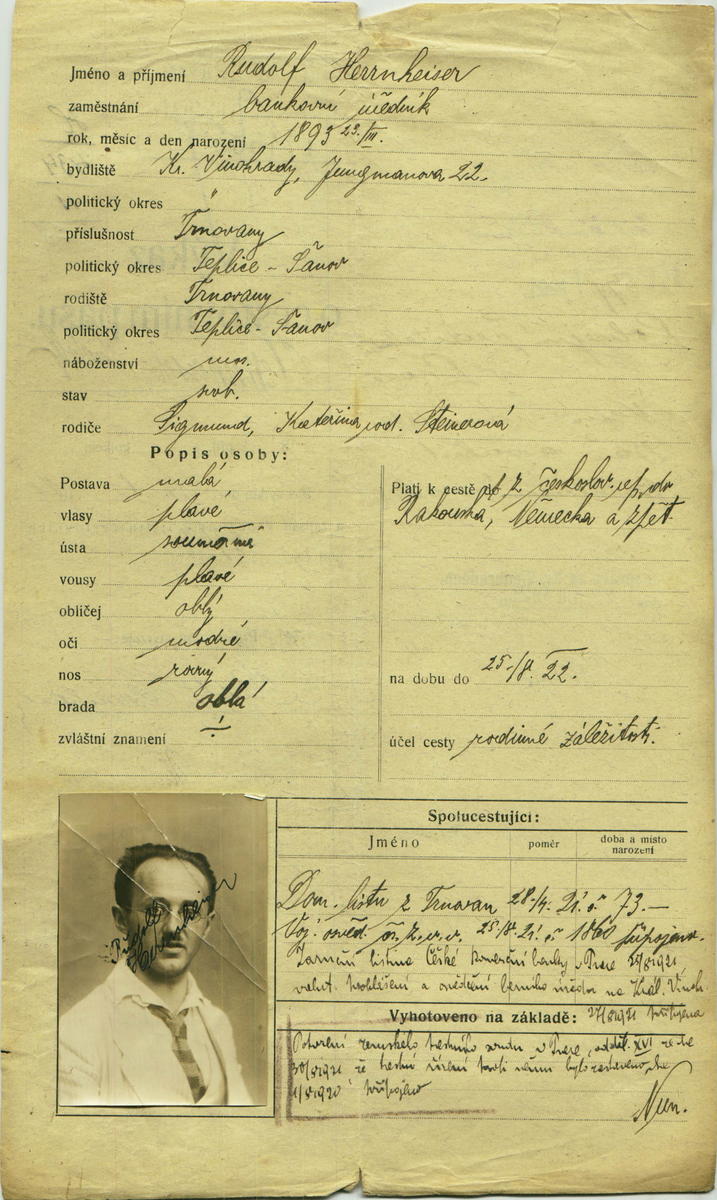 Jméno a příjmení Rudolf Herrnheiser
zaměstnání bankovní úředník
rok, měsíc a den narození 1893 29./III.
bydliště Kr. Vinohrady, Jungmanova 22.
politický okres "
příslušnost Trnovany
politický okres Teplice-Šanov
rodiště Trnovany
politický okres Teplice-Šanov
náboženství mos.
stav svob.
rodiče Sigmund, Kateřina rod. Steinerová
Popis osoby:
Postava malá
vlasy plavé
ústa souměrná
vousy plavé
obličej oblý
oči modré
nos rovný
brada oblá
zvláštní znamení ÷
Platí k cestě do z českoslov. rep. do
Rakouska, Německa a zpět
na dobu do 25./8. 22.
účel cesty rodinné záležitosti.
Rudolf
Herrnheiser
Spolucestující:
Jméno poměr doba a místo narození
Dom. listu z Trnovan 28./4. 21. č. 73.—
Voj. osvěd. 25./8. 21. č. 1860 připojeno.
listina České komerční banky v Praze 1921
prohlášení a osvědčení berního úřadu na Král. Vinoh.
Vyhotoveno na základě: 27/8 1921 připojena
Potvrzení zemského trestního soudu v Praze, odděl. XVI ze dne
30/8 1921 že trestní řízení proti němu bylo zastaveno dne
1/8 1920 připojeno